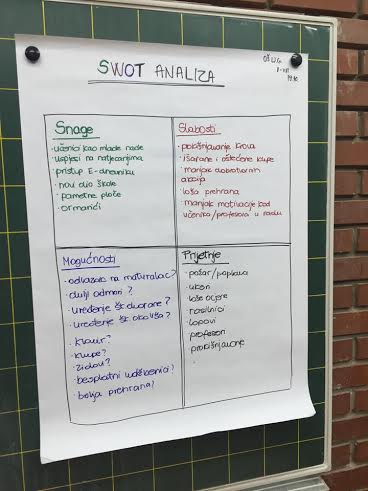 SWOT ANALIZA
Snage
· učenici kao mlade nade
· uspjesi na natjecanjima
· pristup E-dnevniku
· novi dio škole
· pametne ploče
· ormarići
Slabosti
· prokišnjavanje krova
· išarane i oštećene klupe
· manjak dobrotvornih
akcija
· loša prehrana
· manjak motivacije kod
učenika/profesora u radu
Mogućnosti
· odlazak na maturalac?
· dulji odmori?
· uređenje šk. dvorane?
· uređenje šk. okoliša?
· klavir?
· klupe?
· zidovi?
· besplatni udžbenici?
· bolja prehrana?
Prijetnje
· požar/poplava
· ukori
· loše ocjene
· nasilnici
· lopovi
· profesori
· prokišnjavanje